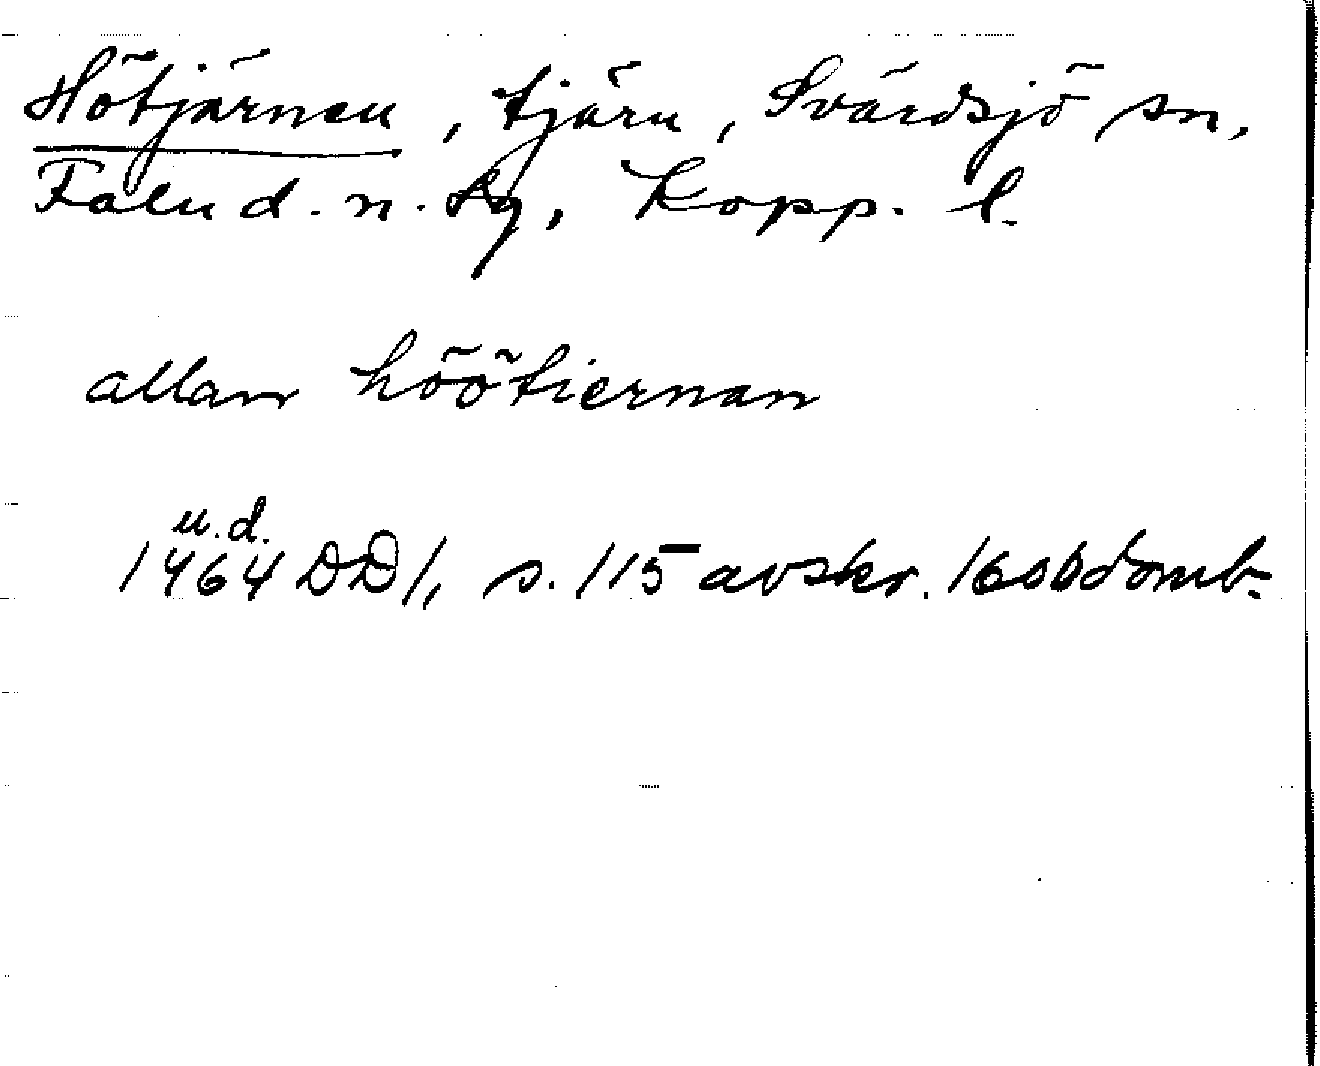 Hötjärnen, tjärn, Svärdsjö sn,
Falu d. n. lg, Kopp. l.
allan höötiernan
u.d.
1464 DD1, s. 115 avskr. 1600 domb.